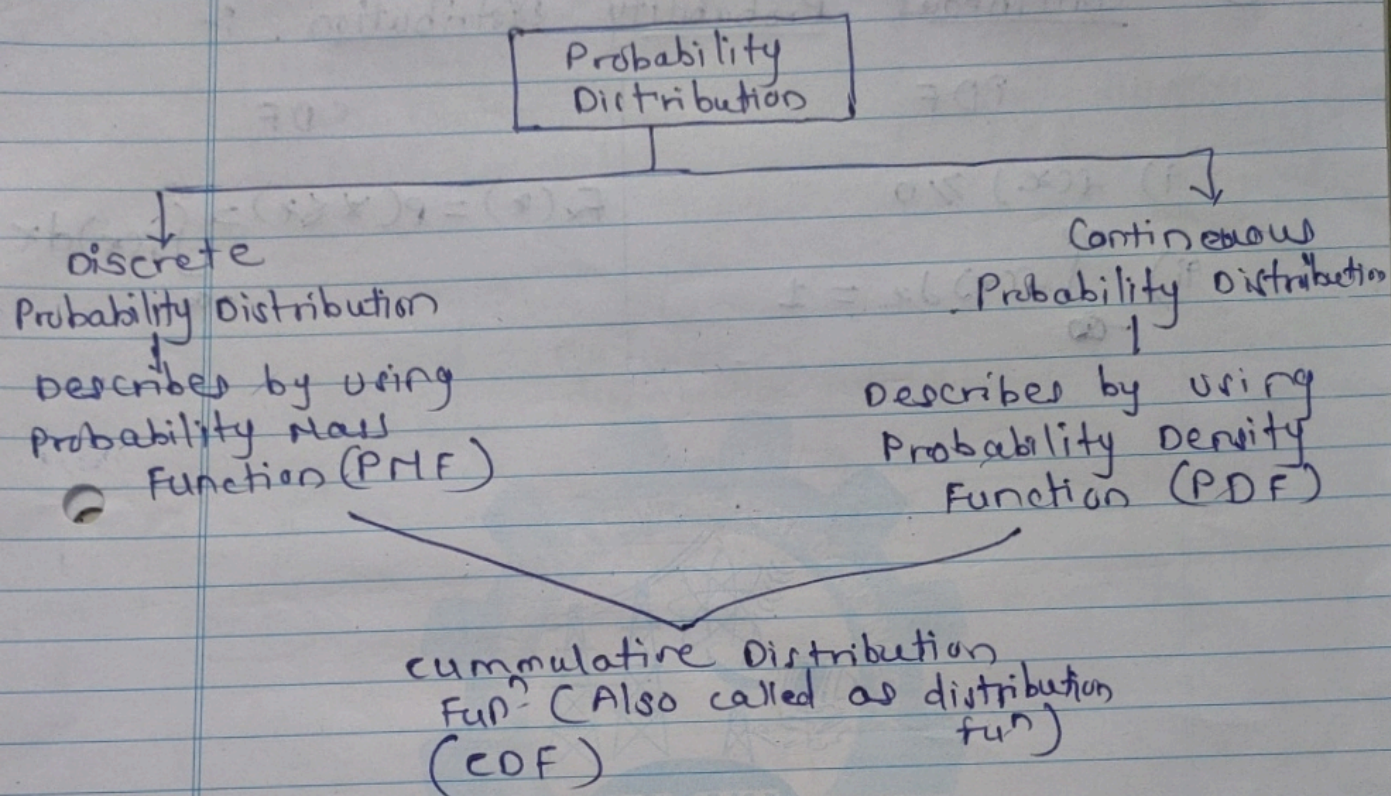 Probability
Distribution
Discrete
Probability Distribution
Describes by using
Probability Mass
Function (PMF)
Continuous
Probability Distribution
Describes by using
Probability Density
Function (PDF)
cummulative Distribution
Funⁿ (Also called as distribution
funⁿ)
(CDF)